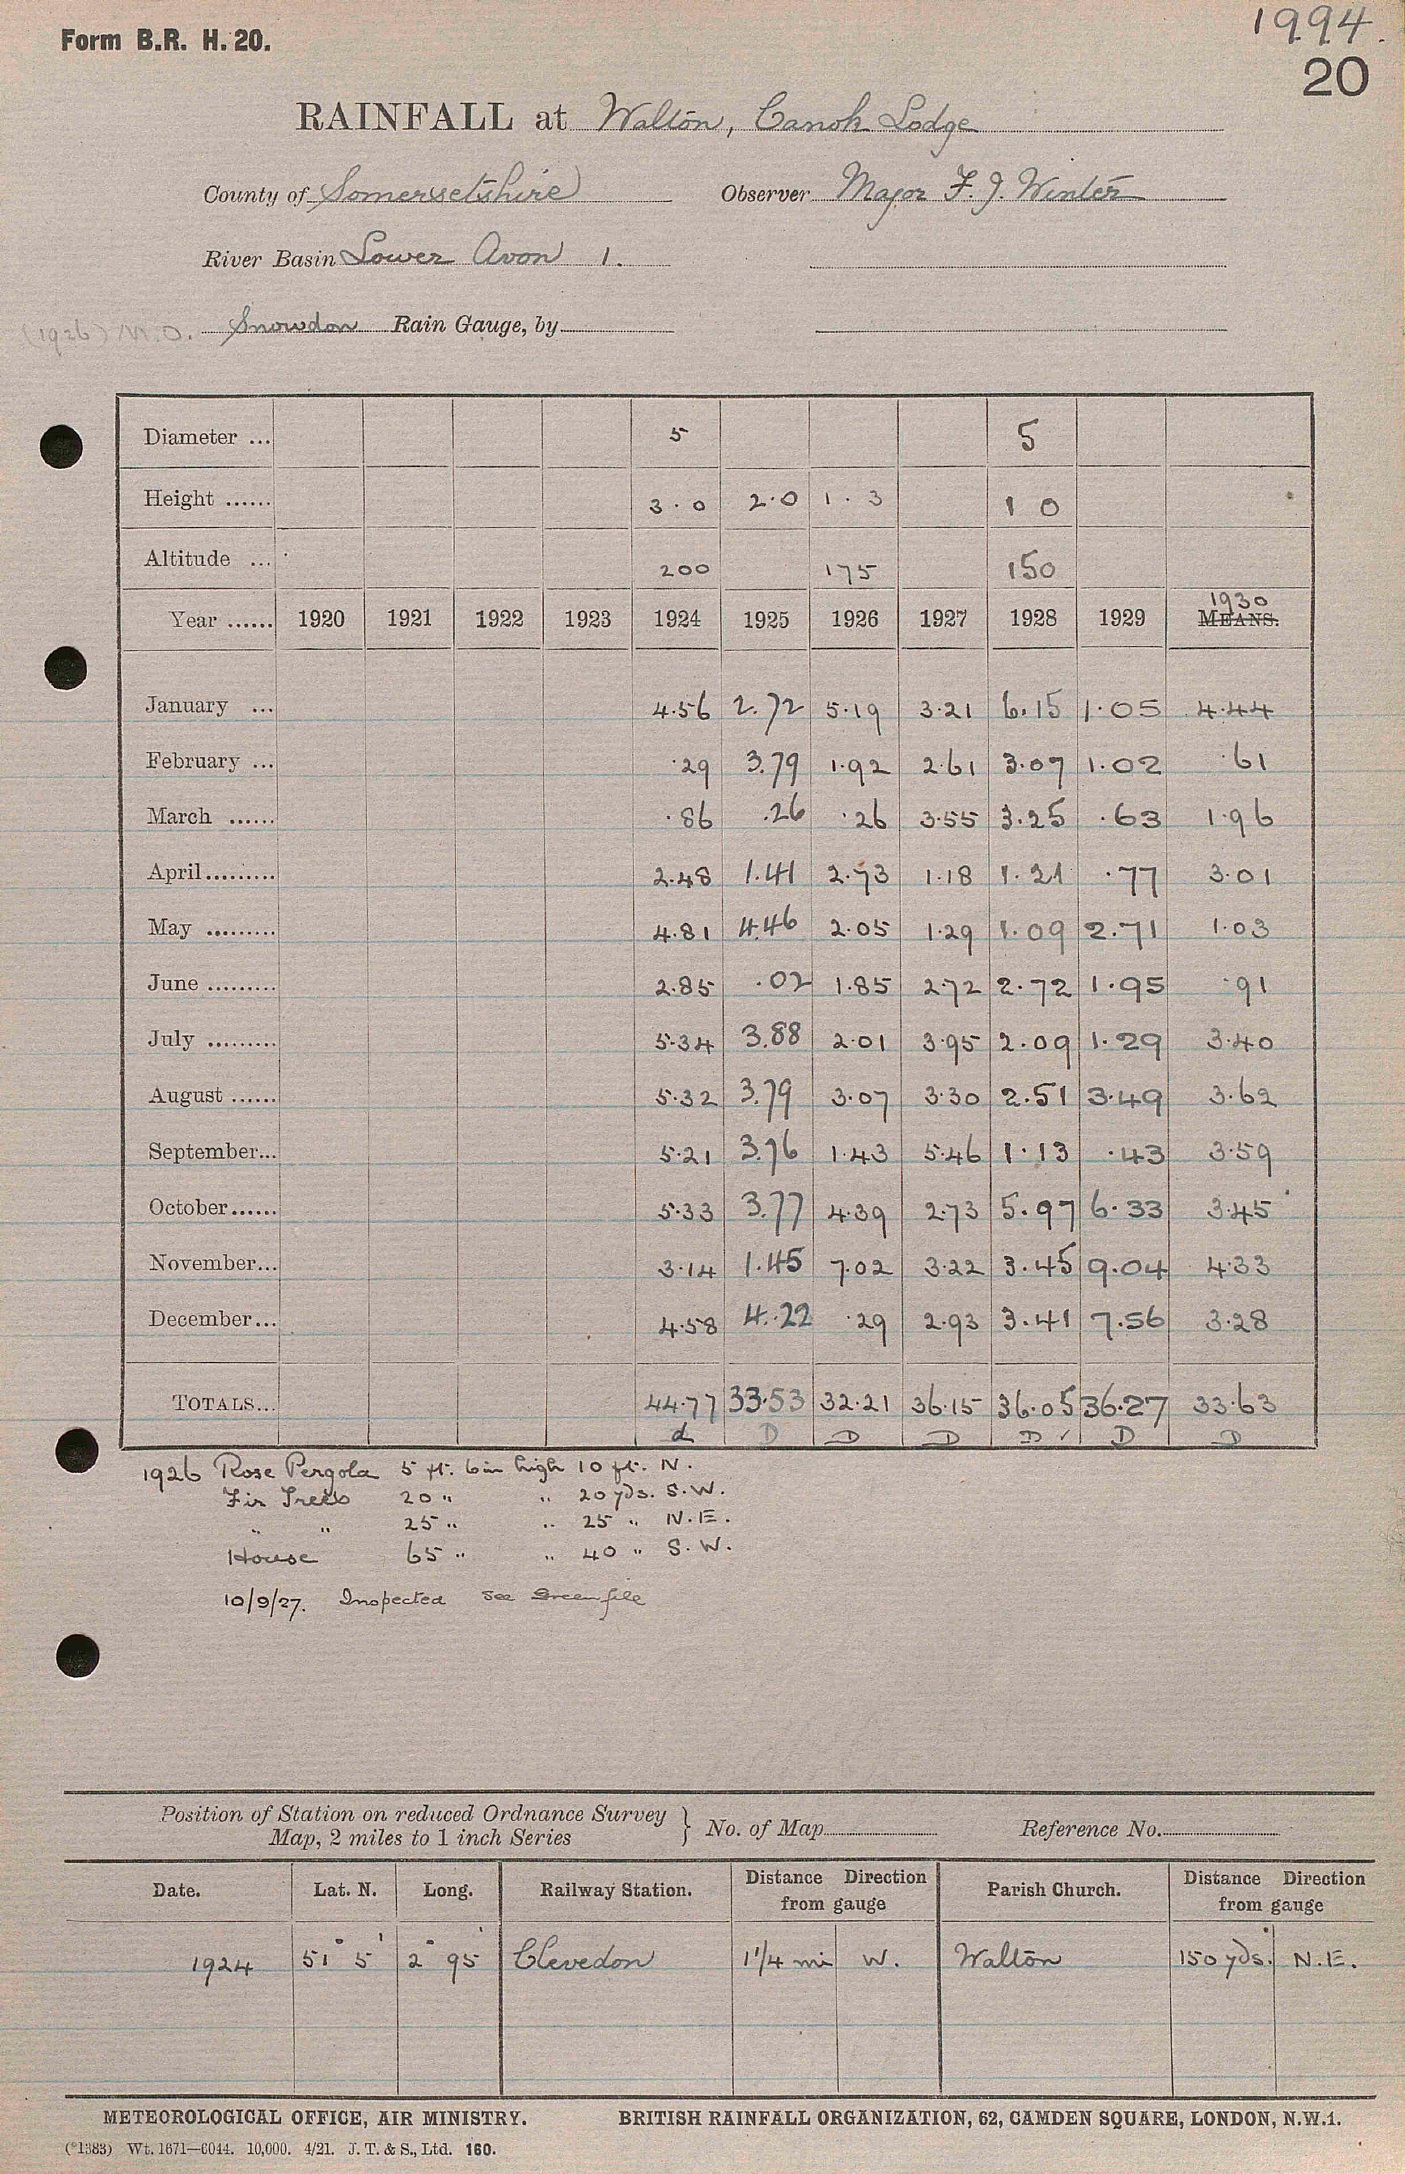 1994.
Form B.R. H. 20.
20
RAINFALL at Walton, Canok Lodge
County of Somersetshire Observer Major F. J. Winter
River Basin Lower Avon 1.
(1926) M.O. Snowdon Rain Gauge, by
Diameter ... 5 5
Height ...... 3.0 2.0 1.3 1 0
Altitude ... 200 175 150
Year ...... 1920 1921 1922 1923 1924 1925 1926 1927 1928 1929 1930 MEANS.
January ... 4.56 2.72 5.19 3.21 6.15 1.05 4.44
February ... .29 3.79 1.92 2.61 3.07 1.02 .61
March ...... .86 .26 .26 3.55 3.25 .63 1.96
April ......... 2.48 1.41 2.73 1.18 1.21 .77 3.01
May ......... 4.81 4.46 2.05 1.29 1.09 2.71 1.03
June ......... 2.85 .02 1.85 2.72 2.72 1.95 .91
July ......... 5.34 3.88 2.01 3.95 2.09 1.29 3.40
August ...... 5.32 3.79 3.07 3.30 2.51 3.49 3.62
September... 5.21 3.76 1.43 5.46 1.13 .43 3.59
October...... 5.33 3.77 4.39 2.73 5.97 6.33 3.45
November... 3.14 1.45 7.02 3.22 3.45 9.04 4.33
December... 4.58 4.22 .29 2.93 3.41 7.56 3.28
TOTALS... 44.77 33.53 32.21 36.15 36.05 36.27 33.63
d D D D D ✓ D D
1926 Rose Pergola 5 ft. 6 in high 10 ft. N.
Fir Trees 20 " " 20 yds. S.W.
" " 25 " " 25 " N.E.
House 65 " " 40 " S.W.
10/9/27. Inspected see Green file
Position of Station on reduced Ordnance Survey
Map, 2 miles to 1 inch Series } No. of Map Reference No.
Date. Lat. N. Long. Railway Station. Distance Direction from gauge Parish Church. Distance Direction from gauge
1924 51° 5' 2° 95' Clevedon 1 1/4 mi W. Walton 150 yds. N.E.
METEOROLOGICAL OFFICE, AIR MINISTRY. BRITISH RAINFALL ORGANIZATION, 62, CAMDEN SQUARE, LONDON, N.W.1.
(*1383) Wt. 1671—6044. 10,000. 4/21. J. T. & S., Ltd. 160.